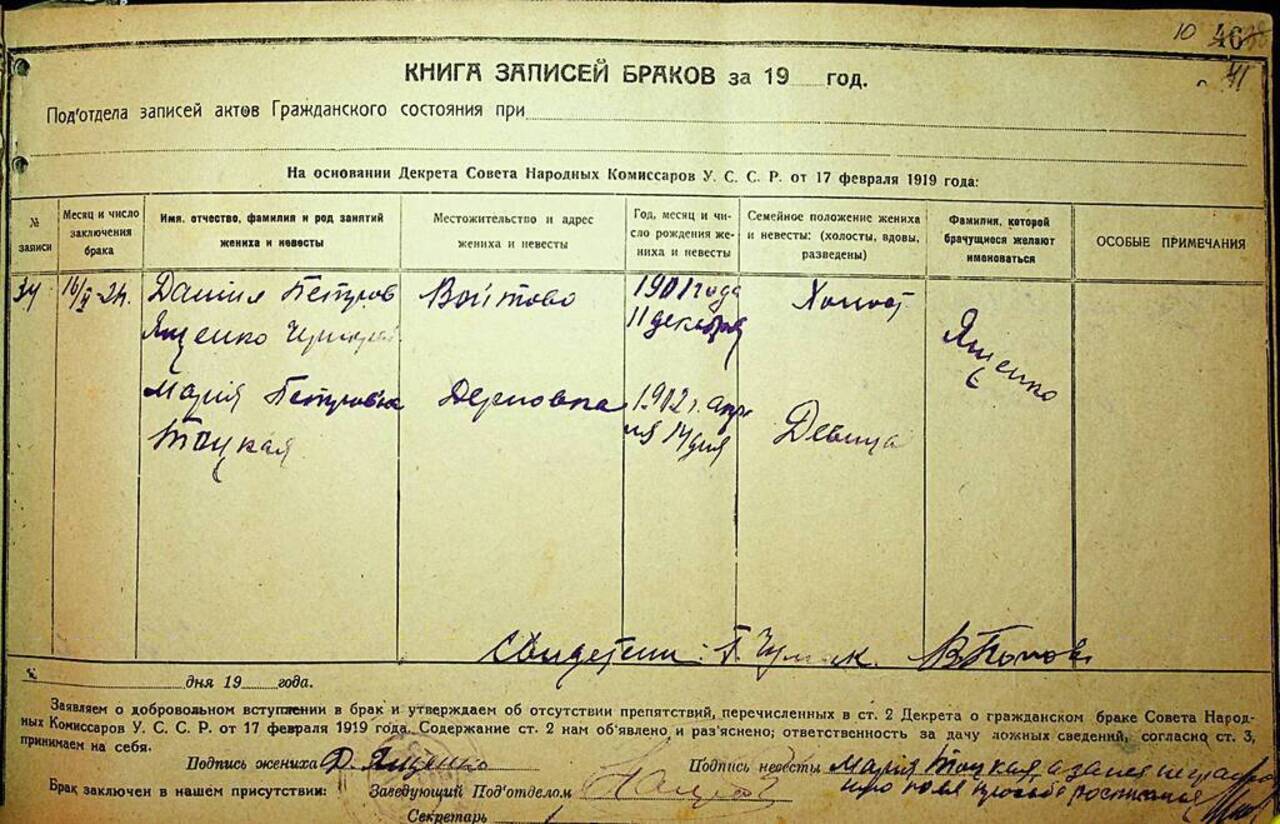 10 46
41
КНИГА ЗАПИСЕЙ БРАКОВ за 19 год.
Под'отдела записей актов Гражданского состояния при
На основании Декрета Совета Народных Комиссаров У. С. С. Р. от 17 февраля 1919 года:
№ записи
Месяц и число заключения брака
Имя, отчество, фамилия и род занятий жениха и невесты
Местожительство и адрес жениха и невесты
Год, месяц и число рождения жениха и невесты
Семейное положение жениха и невесты: (холосты, вдовы, разведены)
Фамилия, которой брачущиеся желают именоваться
ОСОБЫЕ ПРИМЕЧАНИЯ
34 Петров Войтово 1901 года Холост
Ященко 11 декабря Ященко
Мария Петровна 1902 г. апре
Тоцкая ля 14 дня Девица
Свидетели:
дня 19 года.
Заявляем о добровольном вступлении в брак и утверждаем об отсутствии препятствий, перечисленных в ст. 2 Декрета о гражданском браке Совета Народ-
ных Комиссаров У. С. С. Р. от 17 февраля 1919 года. Содержание ст. 2 нам об'явлено и раз'яснено; ответственность за дачу ложных сведений, согласно ст. 3,
принимаем на себя.
Подпись жениха Д. Ященко Подпись невесты Мария Тоцкая, а за нея
Брак заключен в нашем присутствии: Заведующий Под'отделом
Секретарь